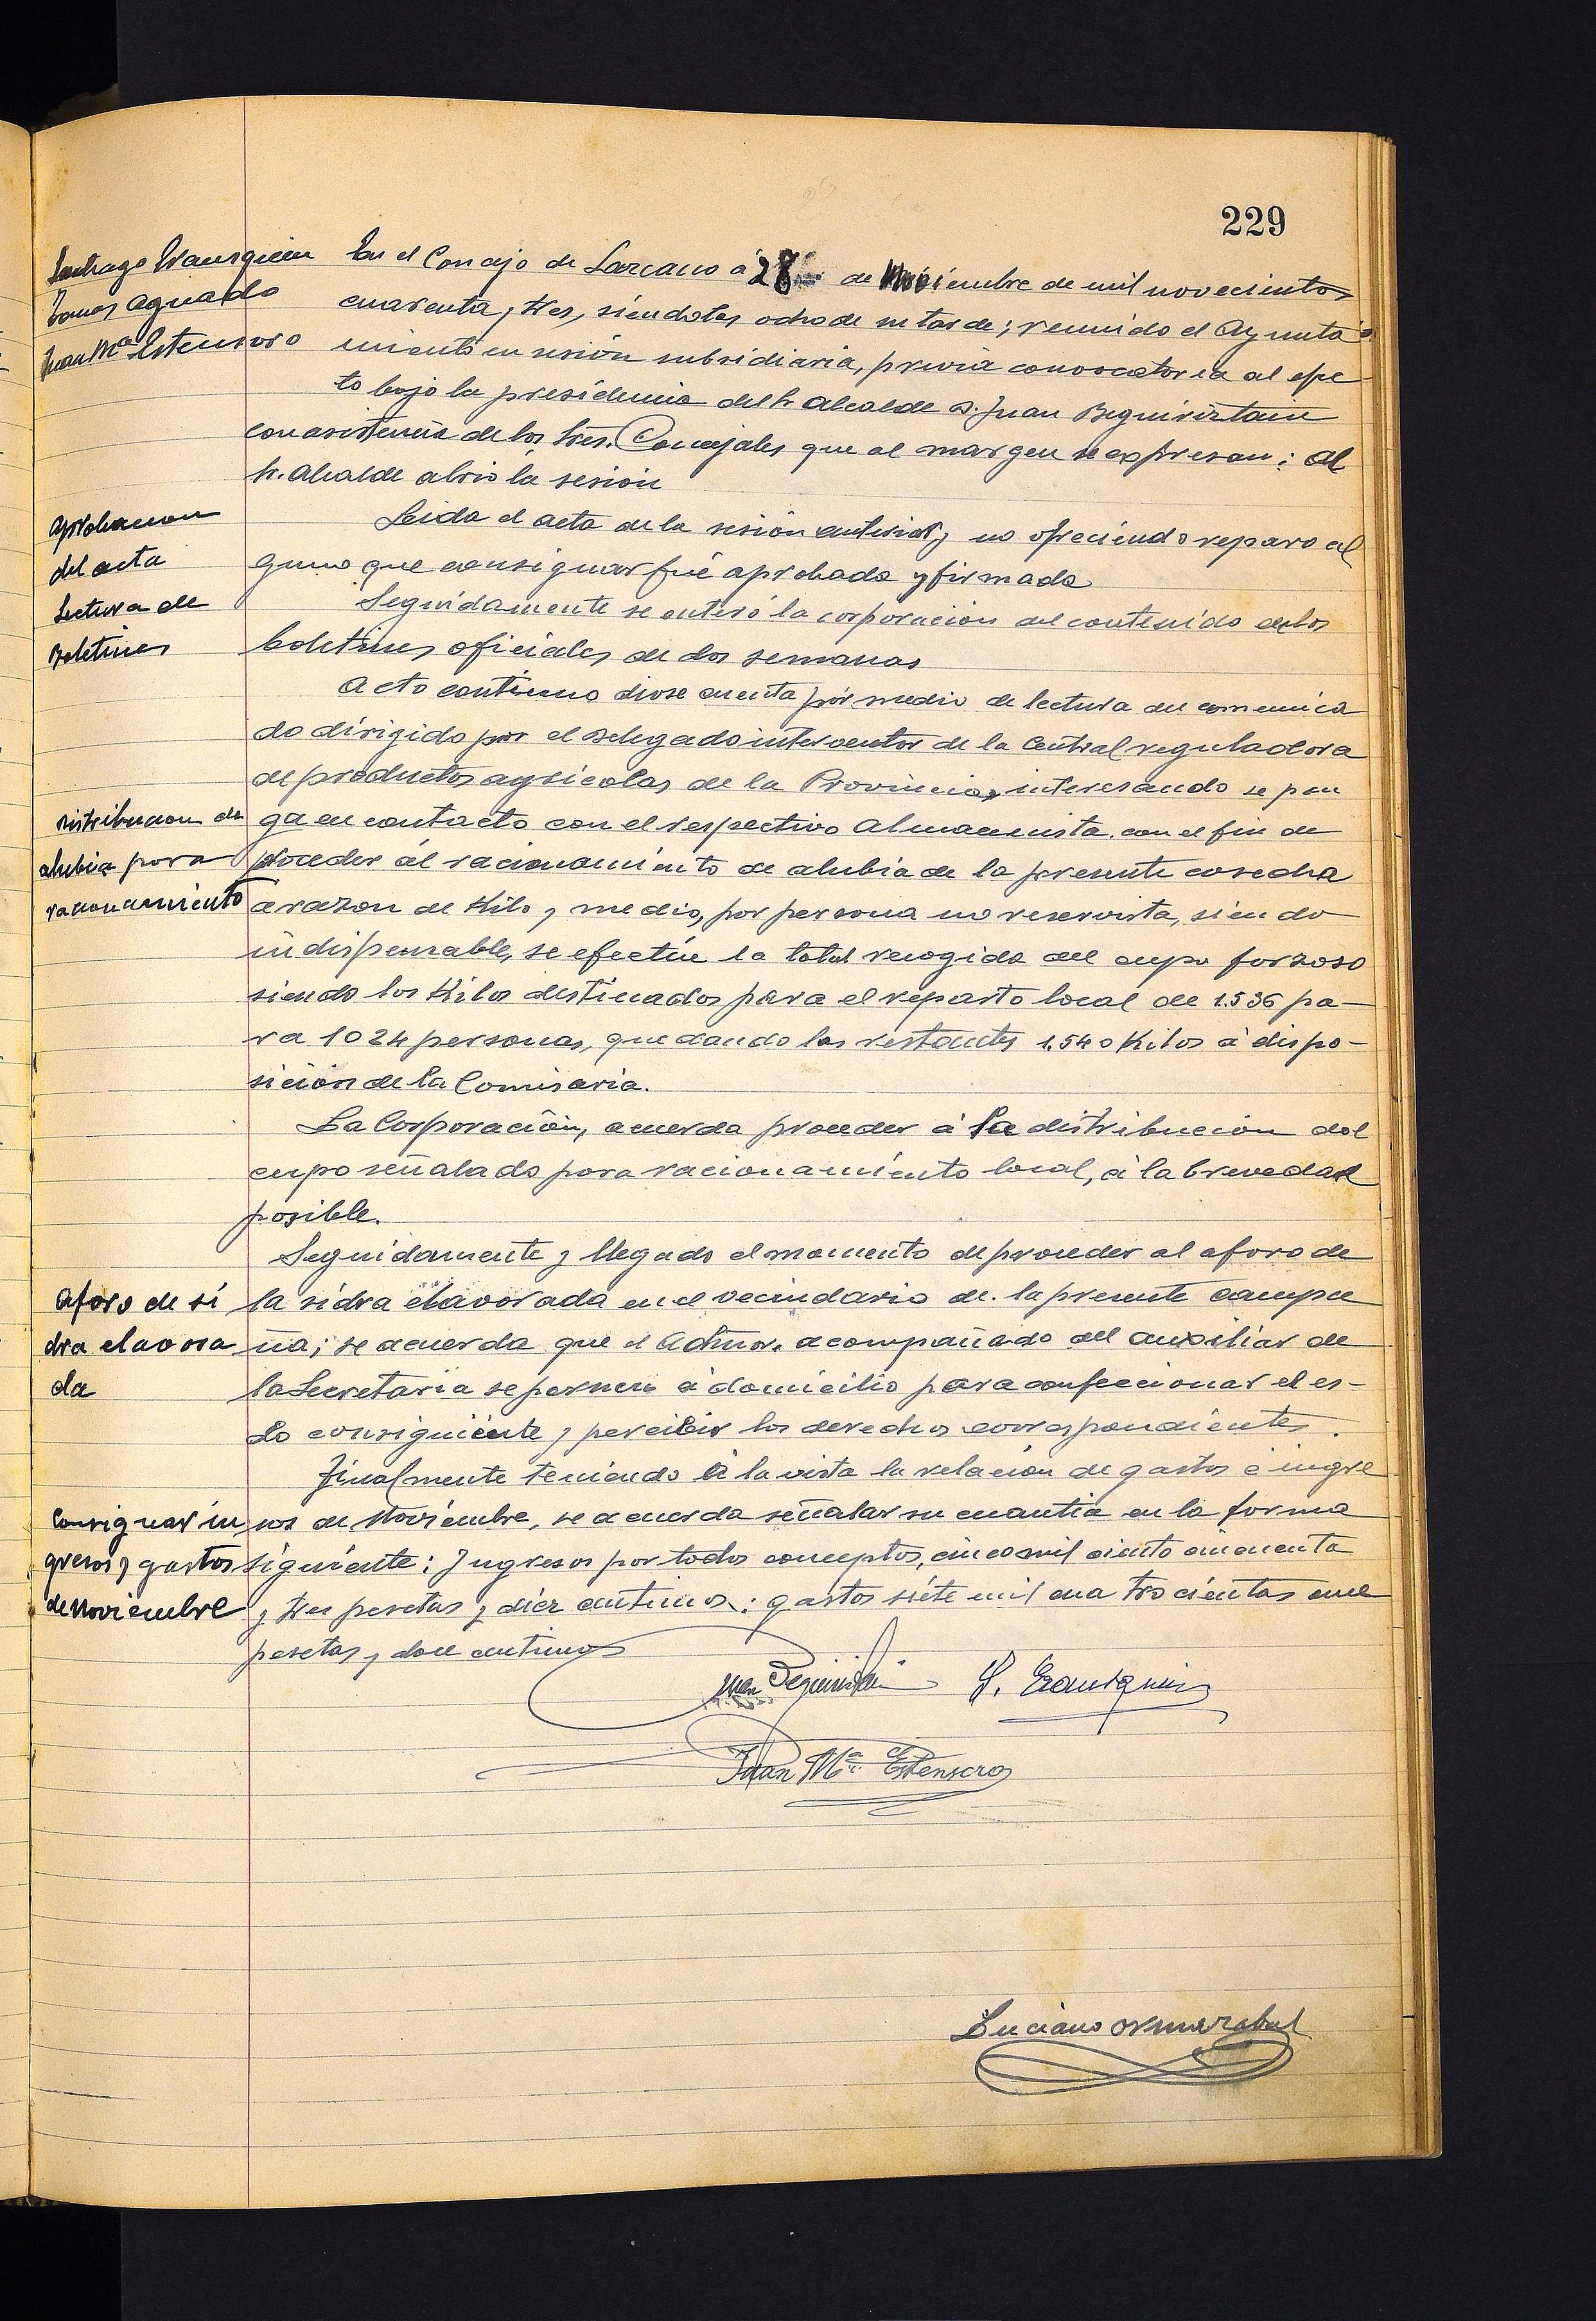 229
Santiago
Tomas Aguado
Juan Mª Estensoro
En el Concejo de Lazcano á 28 de Noviembre de mil novecientos
cuarenta y tres, siendo las ocho de su tarde; reunido el Ayunta
miento en sesión subsidiaria, previa convocatoria al efec
to bajo la presidencia del Sr Alcalde D. Juan Beguiristain
con asistencia de los Sres. Concejales que al margen se expresan: el
Sr. Alcalde abrió la sesión
Aprobacion
del acta
Leida el acta de la sesión anterior y no ofreciendo reparo al
guno que consignar fué aprobada y firmada
Lectura de
Boletines
Seguidamente se enteró la corporación del contenido de los
boletines oficiales de dos semanas
Acto continuo diose cuenta por medio de lectura del comunica
do dirigido por el Delegado interventor de la Central reguladora
de productos agricolas de la Provincia, interesando se pon
Distribucion de
alubia para
racionamiento
ga en contacto con el respectivo Almacenista, con el fin de
proceder ál racionamiento de alubia de la presente cosecha
a razon de Kilo y medio, por persona no reservista, siendo
indispensable, se efectúe la total recogida del cupo forzoso
siendo los Kilos destinados para el reparto local de 1.536 pa-
ra 1024 personas, quedando los restantes 1.540 Kilos á dispo-
sición de la Comisaria.
La Corporación, acuerda proceder á la distribución del
cupo señalado para racionamiento local, á la brevedad
posible.
Seguidamente y llegado el momento de proceder al aforo de
Aforo de si
dra elavora
da
la sidra elavorada en el vecindario de la presente campa
ña; se acuerda que el Admor. acompañado del auxiliar de
la Secretaria se persone á domicilio para confeccionar el es-
do consiguiente y percibir los derechos correspondientes.
Finalmente teniendo á la vista la relación de gastos é ingre
Consignar in
gresos y gastos
de Noviembre
sos de Noviembre, se acuerda señalar su cuantia en la forma
siguiente: Ingresos por todos conceptos, cinco mil ciento cincuenta
y tres pesetas y diez centimos: gastos siete mil cuatrocientas once
pesetas y doce centimos
Juan Beguiristain
S.
Juan Mª Estensoro
Luciano